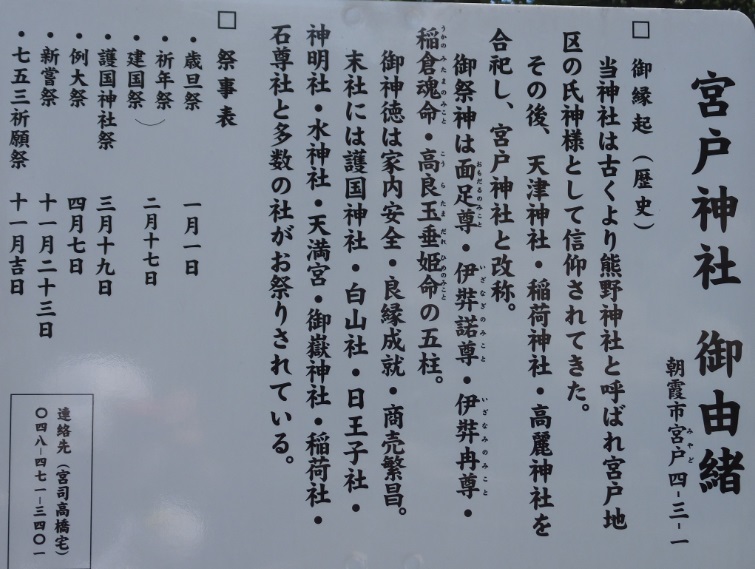 宮戸神社 御由緒
朝霞市宮戸四-三-一
みやど
□ 御縁起（歴史）
当神社は古くより熊野神社と呼ばれ宮戸地
区の氏神様として信仰されてきた。
その後、天津神社・稲荷神社・高麗神社を
合祀し、宮戸神社と改称。
御祭神は面足尊・伊弉諾尊・伊弉冉尊・
おもだるのみこと いざなぎのみこと いざなみのみこと
稲倉魂命・高良玉垂姫命の五柱。
うかのみたまのみこと こうらたまだれひめのみこと
御神徳は家内安全・良縁成就・商売繁昌。
末社には護国神社・白山社・日王子社・
神明社・水神社・天満宮・御嶽神社・稲荷社・
石尊社と多数の社がお祭りされている。
□ 祭事表
・歳旦祭 一月一日
・祈年祭
・建国祭） 二月十七日
・護国神社祭 三月十九日
・例大祭 四月七日
・新嘗祭 十一月二十三日
・七五三祈願祭 十一月吉日
連絡先（宮司高橋宅）
〇四八-四七一-三四〇一